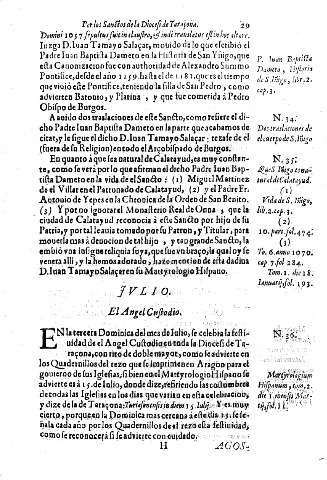 Por los Sanctos de la Diocesi de Taraçona. 29
Domini 1057 sepultus fuit in claustro, & indi translatus est in hoc altare.
Iuzga D. Iuan Tamayo Salaçar, mouido de lo que escribiò el
Padre Iuan Baptista Dameto en la Historia de San Yñigo, que
esta Canonizacion fue con authoridad de Alexandro Summo
Pontifice, desde el año 1159. hasta el de 1181. que es el tiempo
que viuiò este Pontifice, teniendo la silla de San Pedro, como
aduierten Baronio, y Platina, y que fue comerida à Pedro
Obispo de Burgos.
A auido dos traslaciones de este Sancto, como refiere el di-
cho Padre Iuan Baptista Dameto en la parte que acabamos de
citar, y le sigue el dicho D. Iuan Tamayo Salaçar; y trase de èl
(fuera de su Religion) en todo el Arçobispado de Burgos.
En quanto à que sea natural de Calatayud, es muy constan-
te, como se verà por lo que afirman el dicho Padre Iuan Bap-
tista Dameto en la vida del Sancto: (1) Miguel Martinez
de el Villar en el Patronado de Calatayud, (2) y el Padre Fr.
Antonio de Yepes en la Chronica de la Orden de San Benito.
(3) Y por no ignorar el Monasterio Real de Onna, que la
ciudad de Calatayud reconocia à este Sancto por hijo de su
Patria, y por tal le auia tomado por su Patron, y Titular, para
mouerla mas à deuocion de tal hijo, y tan grande Sancto, la
embiò vna insigne reliquia suya, que fue vn braço, la qual oy se
venera alli, y la honra adorado, haze mencion de esta dadiua
D. Iuan Tamayo Salaçer en su Martyrologio Hispano.
JVLIO.
El Angel Custodio.
EN la tercera Dominica del mes de Iulio, se celebra la festi-
uidad de el Angel Custodio en toda la Diocesi de Ta-
raçona, con rito de doble mayor, como se aduierte en
los Quadernillos del rezo que se imprimen en Aragon para el
gouierno de sus Iglesias, si bien en el Martyrologio Hispano se
aduierte en à 15. de Iulio, donde dize, refiriendo las costumbres
de todas las Iglesias en los dias que varian en esta celebracion,
y dize de la de Taraçona: Turiasonensis in diem 15. Iulij. Y es muy
cierto, porque en la Dominica mas cercana à este dia 15. se se-
ñala cada año por los Quadernillos de el rezo esta festiuidad,
como se reconocerà si se aduierte con cuidado.
H AGOS-
P. Iuan Baptista
Dameto, Historia
de S. Iñigo, lib. 2.
cap. 3.
N. 34.
Dos traslaciones de
el cuerpo de S. Iñigo
N. 35.
Que S. Iñigo es na-
tural de Calatayud.
(1)
Vida de S. Iñigo,
lib. 2. cap. 3.
(2)
10. part. fol. 474.
(3)
To. 6. anno 1070.
cap. 7. fol. 284.
Tom. 1. die 18.
Ianuarij, fol. 193.
N. 36.
Martyrologium
Hispanum, tom. 2.
die 1. mensis Mar-
tij, fol. 11.